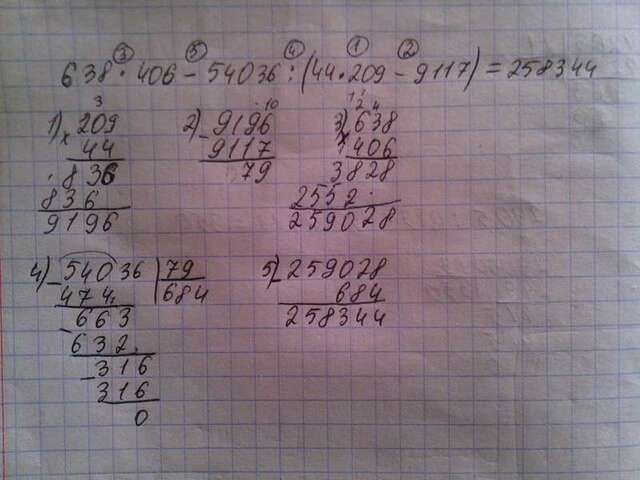 ③ ⑤ ④ ① ②
638 · 406 − 54036 : (44 · 209 − 9117) = 258344
1) 3
× 209
44
836
836
9196
2) · 10
− 9196
9117
79
3) 1 1
2 4
× 638
406
3828
2552
259028
4) − 54036 | 79
474 | 684
− 663
632
− 316
316
0
5) − 259028
684
258344